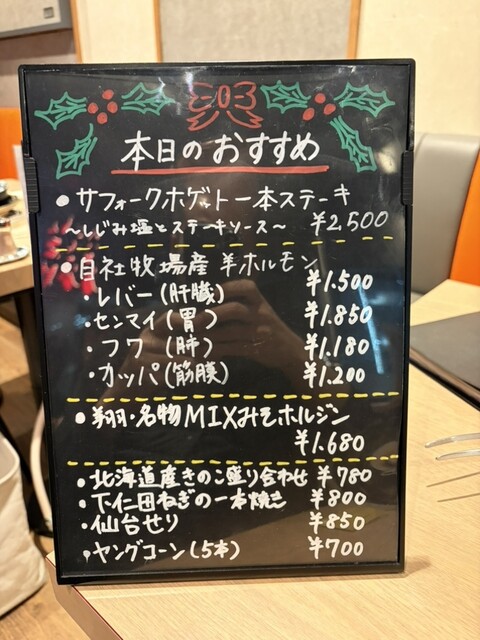 本日のおすすめ
●サフォークホゲット一本ステーキ
～しじみ塩とステーキソース～ ¥2,500
●自社牧場産羊ホルモン
・レバー(肝臓) ¥1.500
・センマイ(胃) ¥1.850
・フワ(肺) ¥1.180
・カッパ(筋膜) ¥1.200
●翔・名物MIXみそホルジン
¥1.680
・北海道産きのこ盛り合わせ ¥780
・下仁田ねぎの一本焼き ¥800
・仙台せり ¥850
・ヤングコーン(5本) ¥700